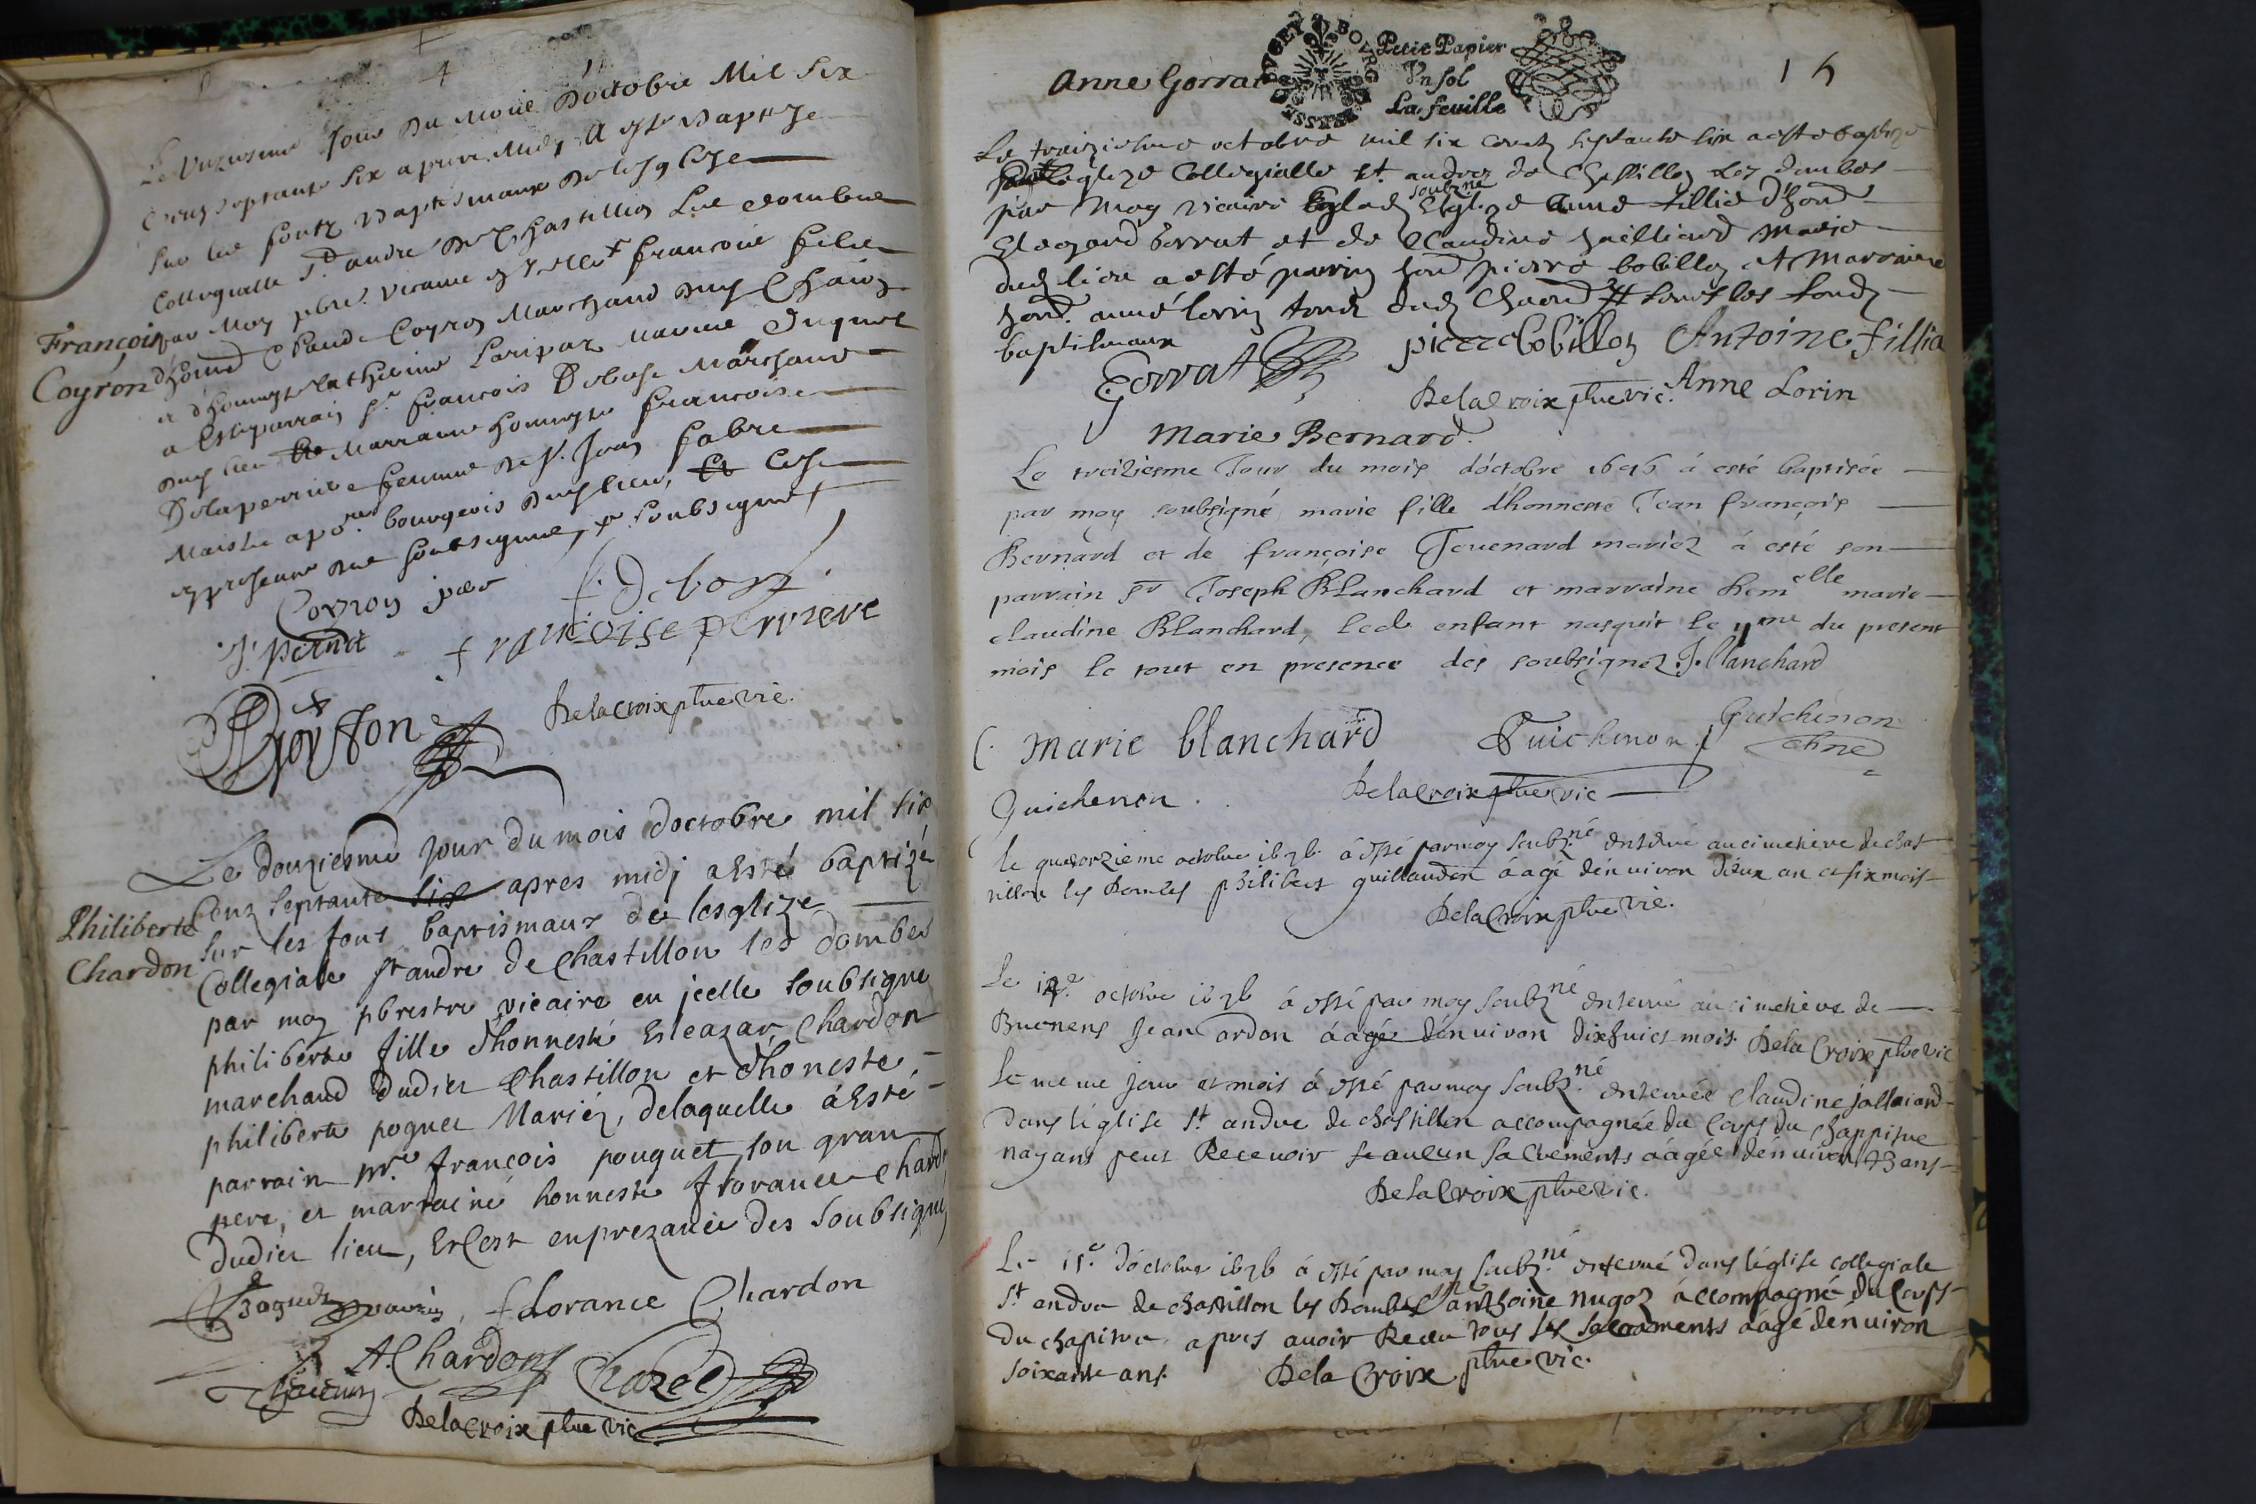 Le Unziesme Jour Du Moiie D'octobre Mil Six
Cens septante six apres Midy A este Baptize
sur les fontz Baptismaux de lesglize
Collegialle St andre de Chastillon Les dombes
par Moy pbre. vicaire francois filz
François
Coyron
d'honne Claude Coyron Marchand dud Chaon
et d'honneste Catherine
a Esté parrain Sr. francois Debost Marchand
dud lieu Marraine honneste francoise
Delaperriere femme de Sr. Jean fabre
Maistre apore. bourgeois dud lieu, Et Ce
en presence des soubsignes, soubsigne
Coyron père
f. Debost
françoise perriere
Delacroix pbre vic.
Le douziesme jour du mois doctobre mil six
Cens septante six apres midj a Esté baptizé
Philiberte
Chardon
sur les fons baptismaux de lesglize
Collegiale st andre de Chastillon les dombes
par moy pbrestre vicaire en jcelle soubsigne
philiberte fille d'honneste Esleazar Chardon
marchand dudiet Chastillon et d'honeste
philiberte poguet Mariéz, de laquelle à Esté
parrain Mre. françois pouguet son gran
pere, et marraine honneste florance Chardo
dudiet lieu, Et Cest en prezance des soubsignes
florance Chardon
A. Chardon Chazel
Delacroix pbre vic
Petit Papier
Vn sol
La feuille
Anne Gorrat
15
Le traiziesme octobre mil six centz septante six a esté baptizé
leglize Collegialle St. andrez de Chastillon Les dombes
par moy vicaire soubzné Anne fillie d'hond
Eleazard Gorrat et de Claudine Marie
dud lieu a esté parrin hond pierre bobillon et Marraine
hond. anne lorin tous dud Chaon sur les fondz
baptismaux
Gorrat pierre bobillon Antoine fillia
Delacroix pbre vic. Anne Lorin
Marie Bernard.
Le treiziesme Jour du mois d'octobre 1676 à esté baptisée
par moy soubsigné marie fille d'honneste Jean françois
Bernard et de françoise Jeuenard mariéz à esté son
parrain Sr Joseph Blanchard et marraine Demelle marie
claudine Blanchard, led. enfant nasquit le yme du present
mois le tout en presence des soubsignez. J. blanchard
C. Marie blanchard Guichenon Guichenon
Guichenon. Delacroix pbre vic
le quatorzieme octobre 1676 à esté par moy soubz.né enterré au cimetiere de chas
tillon les Dombes philibert guillaudon áagé d'enuiron deux an et six mois
Delacroix pbre vic.
Le 14e. octobre 1676 à esté par moy soubz.né enterré au cimetiere de
Buenens Jean Cardon áagé d'enuiron dixhuict mois. Dela Croix pbre vic
Le meme jour et mois à esté par moy soubz.né enterrée Claudine jallaiard
dans l'église St. andre de chastillon accompagnée du Corps du chappitre
nayant peut Receuoir aucun sacrements áagée d'enuiron 43 ans
Delacroix pbre vic.
Le 15e. d'octobre 1676 à esté par moy soubz.né enterré dans l'église collegiale
St. andre de chastillon les Dombes anthoine nugoz accompagné du Corps
du chapitre apres auoir Receu tous les sacrements áagé d'enuiron
soixante ans. Dela Croix pbre vic.